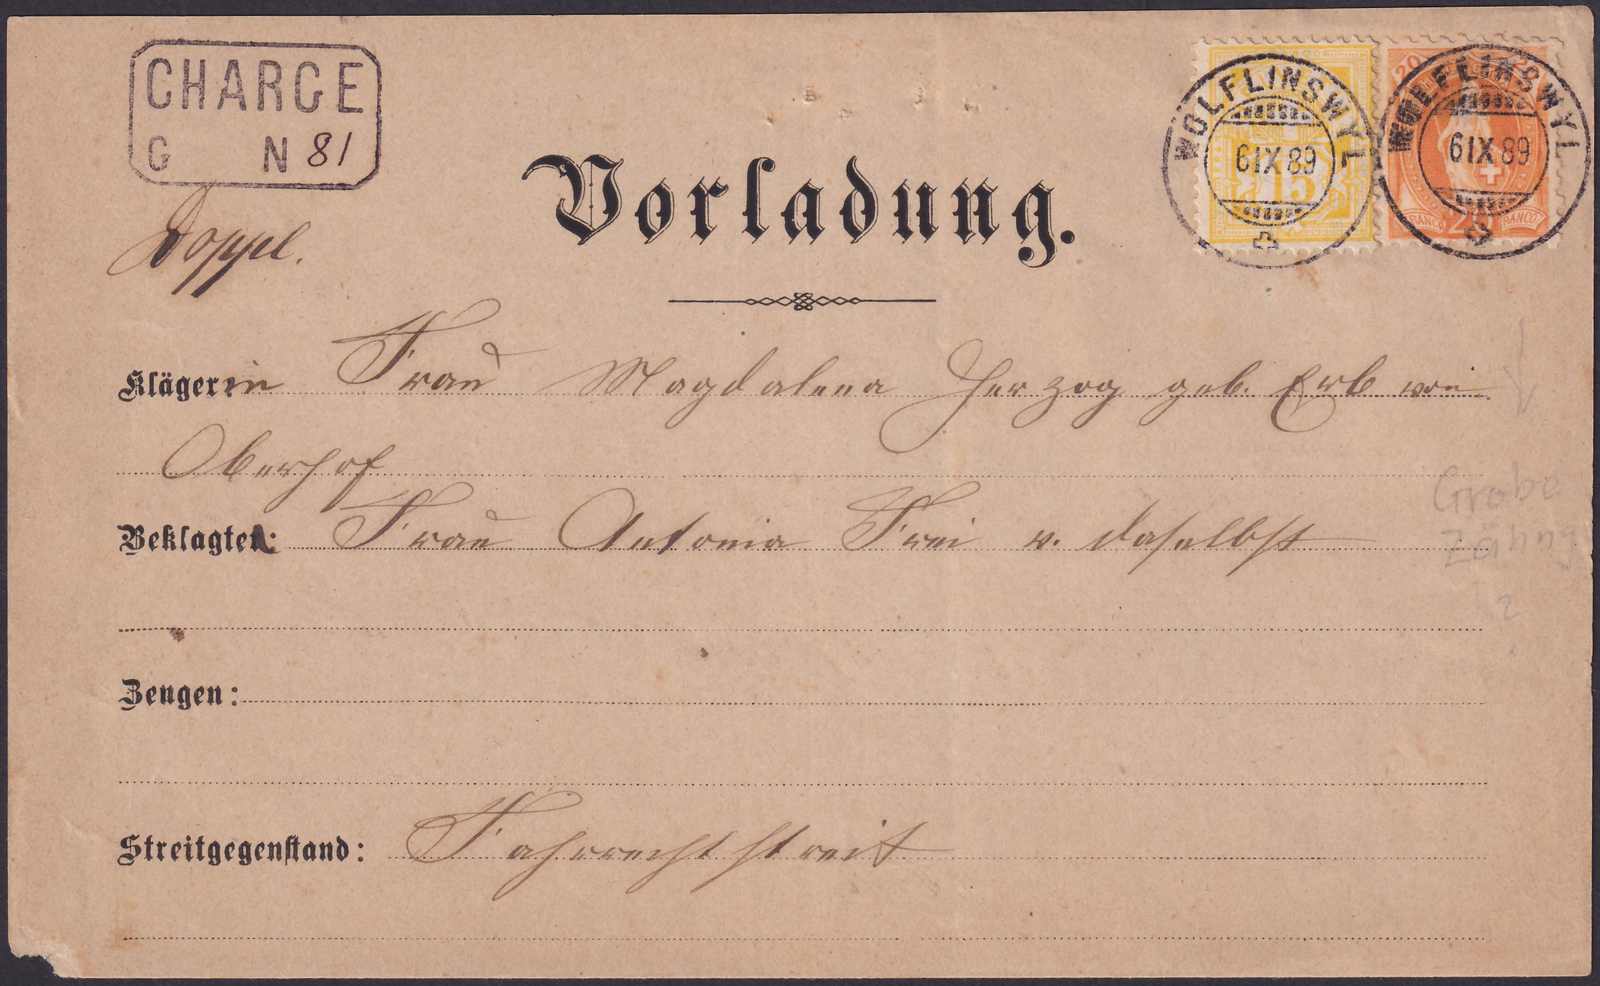 CHARGE
G N 81
Doppel.
Vorladung.
WÖLFLINSWYL
6 IX 89
15
WÖLFLINSWYL
6 IX 89
20
FRANCO 20 FRANCO
Klägerin Frau Magdalena Herzog geb. Erb von
Oberhof
Beklagte: Frau Antonia Frei v. daselbst
Grobe
Zähnung
Zeugen:
Streitgegenstand: Fahrrechtstreit